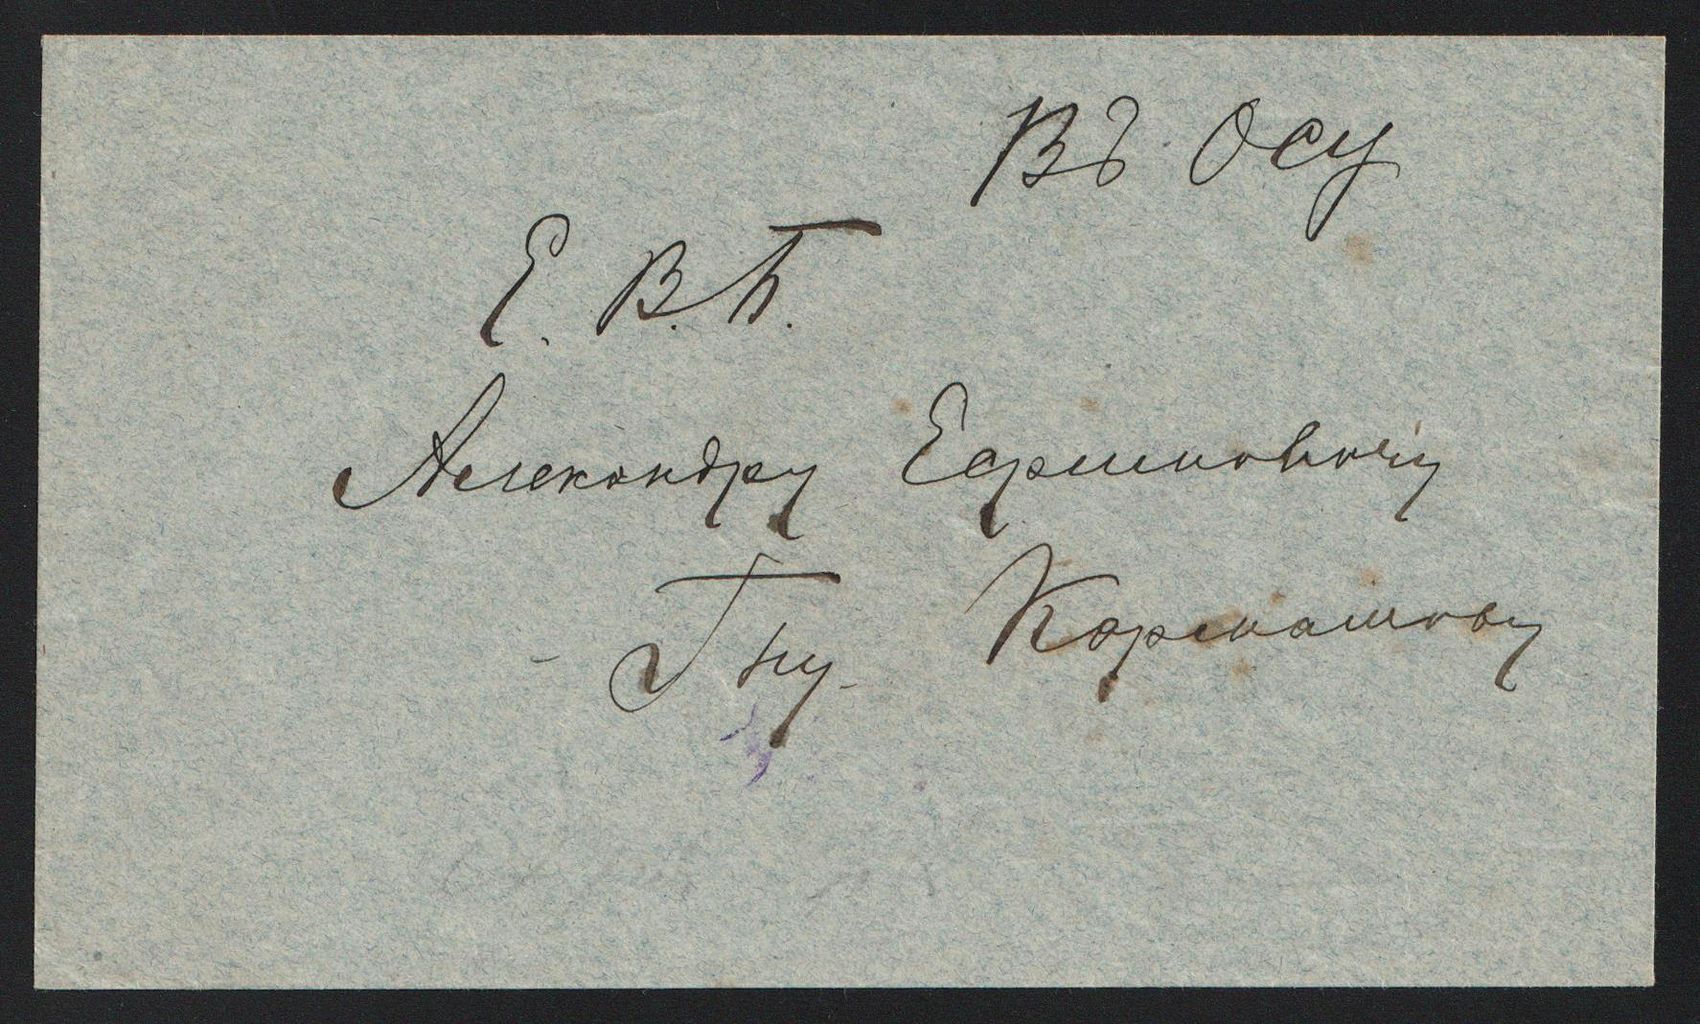 Въ Осу
Е. В. Б.
Александру Ефимовичу
Гну. Кормашову